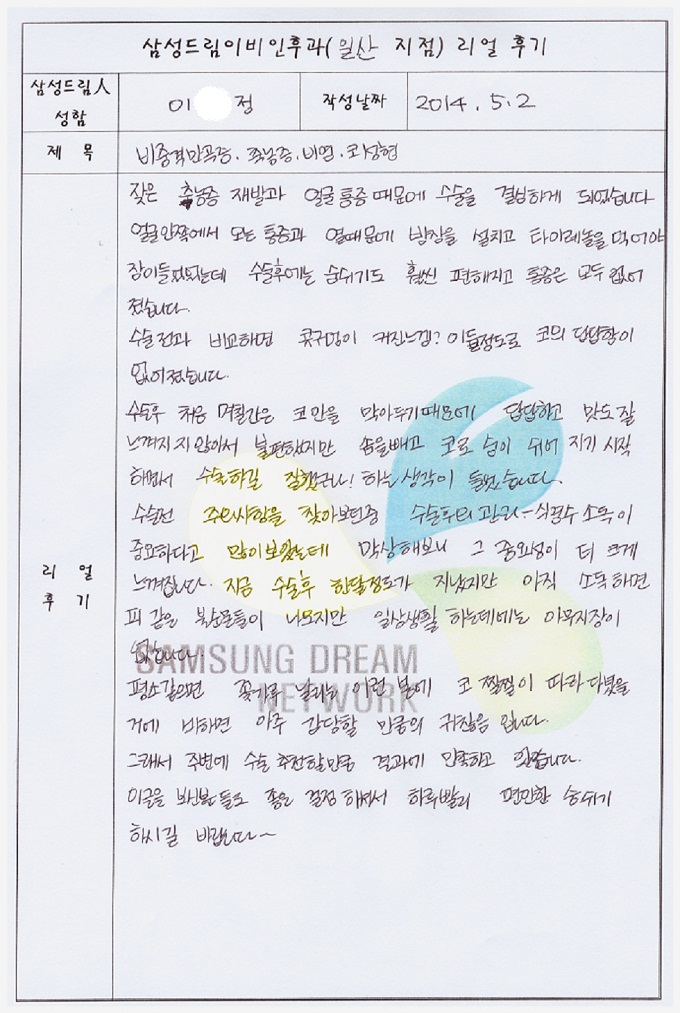 삼성드림이비인후과(일산 지점) 리얼 후기
삼성드림人 성함
이 정
작성날짜
2014. 5. 2
제 목
비중격만곡증. 축농증. 비염. 코성형
리 얼 후 기
잦은 축농증 재발과 얼굴 통증 때문에 수술을 결심하게 되었습니다
얼굴 안쪽에서 오는 통증과 열때문에 밤잠을 설치고 타이레놀을 먹어야
잠이들었었는데 수술후에는 숨쉬기도 훨씬 편해지고 통증은 모두 없어
졌습니다.
수술전과 비교하면 콧구멍이 커진느낌? 이들정도로 코의 답답함이
없어졌습니다.
수술후 처음 며칠간은 코안을 막아두기때문에 답답하고 맛도잘
느껴지지않아서 불편했지만 솜을빼고 코로 숨이 쉬어 지기 시작
하면서 수술하길 잘했구나! 하는 생각이 들었습니다.
수술전 주의사항을 찾아보던중 수술후의 관리-식염수 소독이
중요하다고 많이보았는데 막상해보니 그 중요성이 더 크게
느껴집니다. 지금 수술후 한달정도가 지났지만 아직 소독하면
피 같은 불순물들이 나오지만 일상생활 하는데에는 아무지장이
없습니다.
평소같으면 꽃가루 날리는 이런 봄에 코 찔찔이 따라다녔을
거에 비하면 아주 감당할 만큼의 귀찮음 입니다.
그래서 주변에 수술 추천할만큼 결과에 만족하고 있습니다.
이글을 보신분들도 좋은 결정 하셔서 하루빨리 편안한 숨쉬기
하시길 바랍니다~
SAMSUNG DREAM
NETWORK